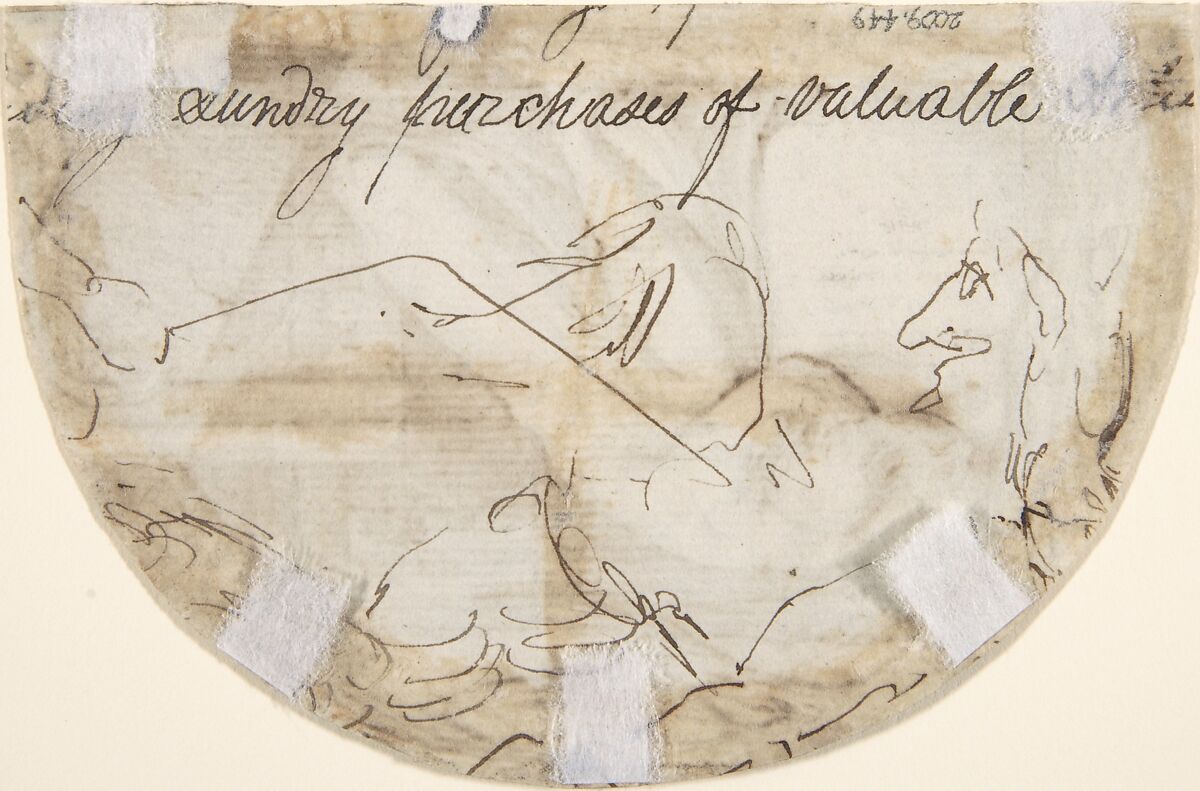 2009.449
sundry purchases of valuable